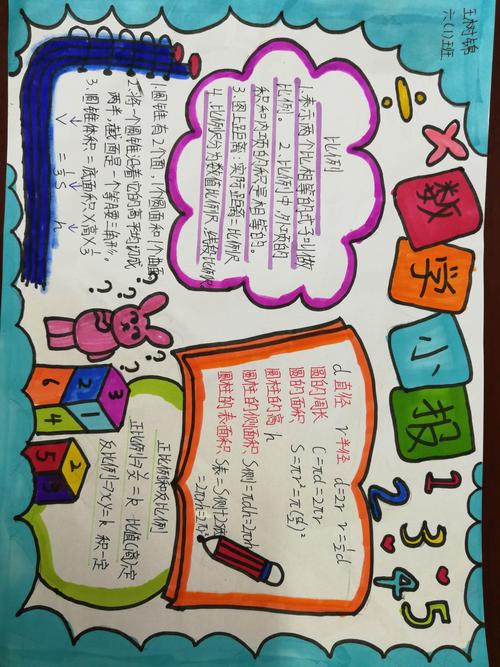 王树锦
六(1)班
数学小报
1 2 3 4 5
比例
1.表示两个比相等的式子叫做
比例。 2.比例中,外项的
积和内项的积是相等的。
3.图上距离:实际距离=比例尺
4.比例尺分为数值比例尺、线段比例尺
1.圆锥有2个面,1个圆面积1个曲面
2.将一个圆锥沿着它的高平均切成
两半,截面是一个等腰三角形。
3.圆锥体积=底面积×高×⅓
V = ⅓ S h
d直径 r半径 d=2r r=½d
圆的周长 C=πd=2πr
圆的面积 S=πr²=π(d/2)²
圆柱的高 h
圆柱的侧面积 S侧=πdh=2πrh
圆柱的表面积 S表=S侧+2底
=2πrh+2πr²
正比例和反比例
正比例→y/x=k 比值(商)一定
反比例→xy=k 积一定
? ? ? ? ?
3 2 1 6 4
2 5 3